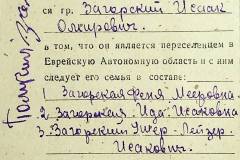 ся гр. Загорский Исаак
Олкирович.
в том, что он является переселенцем в
Еврейскую Автономную область и с ним
следует его семья в составе:
1 Загорская Феня Мееровна
2. Загорская Ида Исаковна
3. Загорский Ушер-Лейзер
Исакович.